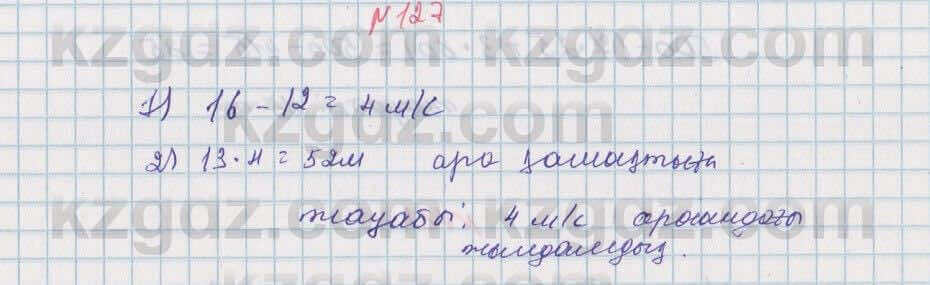 №127
kzgdz.com kzgdz.com
1) 16 - 12 = 4 м/с
kzgdz.com
2) 13 · 4 = 52м ара қашықтығы
жауабы: 4 м/с арасындағы
kzgdz.com kzgdz.com
жылдамдық.